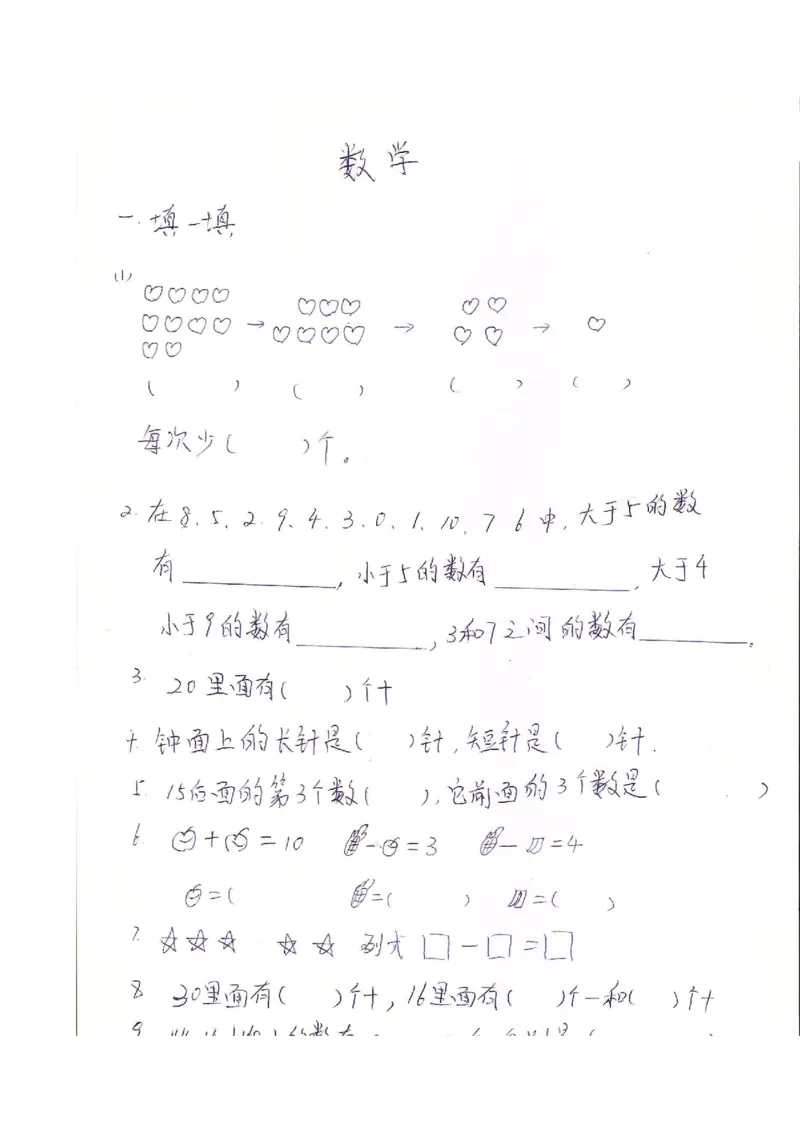 数学
一.填一填
(1)
♡♡♡♡
♡♡♡♡ → ♡♡♡ ♡♡♡♡ → ♡♡ ♡♡ → ♡
♡♡
( ) ( ) ( ) ( )
每次少( )个。
2.在8、5、2、9、4、3、0、1、10、7 6中,大于5的数
有__________,小于5的数有__________,大于4
小于9的数有__________,3和7之间的数有__________。
3. 20里面有( )个十
4.钟面上的长针是( )针,短针是( )针.
5. 15后面的第3个数( ),它前面的3个数是( )
6. + =10 - =3 - =4
=( =( ) =( )
7. ☆☆☆ ☆☆ 列式□-□=□
8 30里面有( )个十,16里面有( )个一和( )个十
9